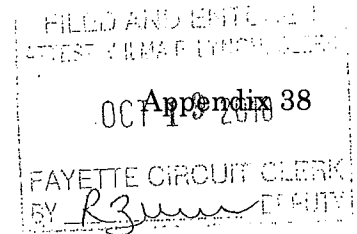 FILED AND ENTERED
ATTEST, WILMA F. LYNCH, CLERK
Appendix 38
OCT 19 2010
FAYETTE CIRCUIT CLERK
BY DEPUTY